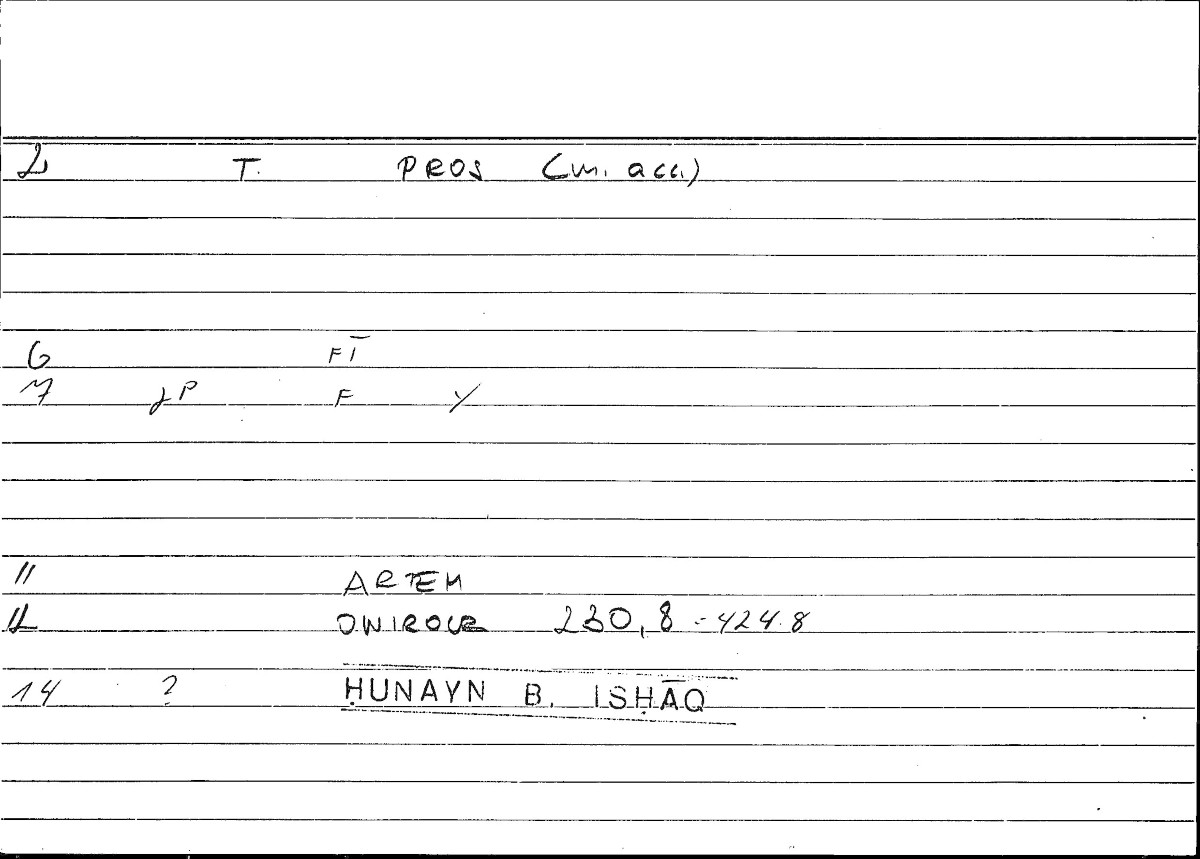 2 T. PROS (m. acc.)
6 FĪ
7 gP F Y
11 ARTEM
12 ONIROCR 230,8 - 424.8
14 ? ḤUNAYN B. ISḤĀQ